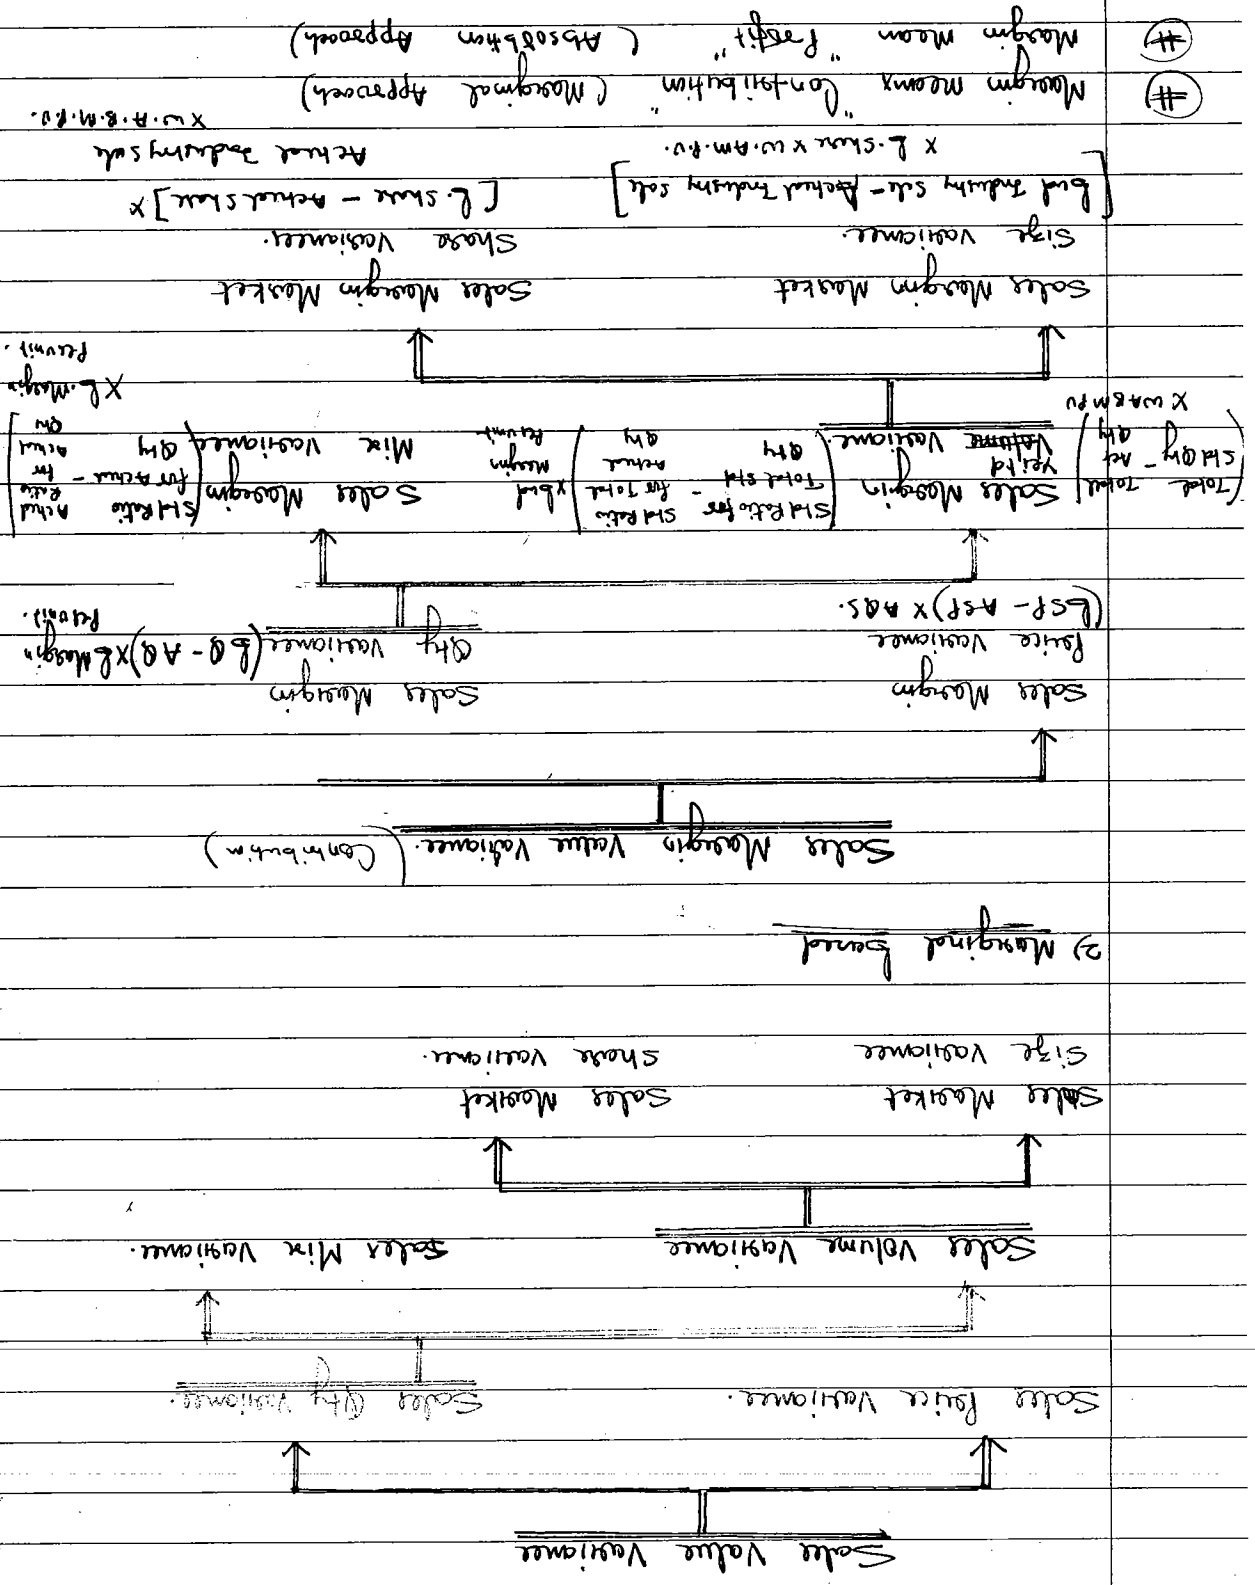 Sales Value Variance
Sales Price Variance.
Sales Qty Variance.
Sales Volume Variance
Sales Mix Variance.
Sales Market
Size Variance
Sales Market
Share Variance.
2) Marginal based
Sales Margin Value Variance. (Contribution)
Sales Margin
Price Variance
(BSP - ASP) X AQS.
Sales Margin
Qty Variance (BQ - AQ) X B Margin
Per unit.
Sales Margin
Volume Variance
(Total Std Qty - Total Act Qty)
X WABMPU
(Std Ratio for Total Std Qty - Std Ratio for Total Actual Qty) X bud Margin Per unit
Sales Margin
Mix Variance
(Std Ratio for Actual Qty - Actual Ratio for Actual Qty)
X B. Margin
Per unit.
Sales Margin Market
Size Variance.
[bud Industry Sale - Actual Industry Sale]
X B. Share X W.AM.P.U.
Sales Margin Market
Share Variance.
[B. Share - Actual Share] X
Actual Industry Sale
X W.A.B.M.P.U.
# Margin means "Contribution" (Marginal Approach)
# Margin mean "Profit" (Absorbtion Approach)